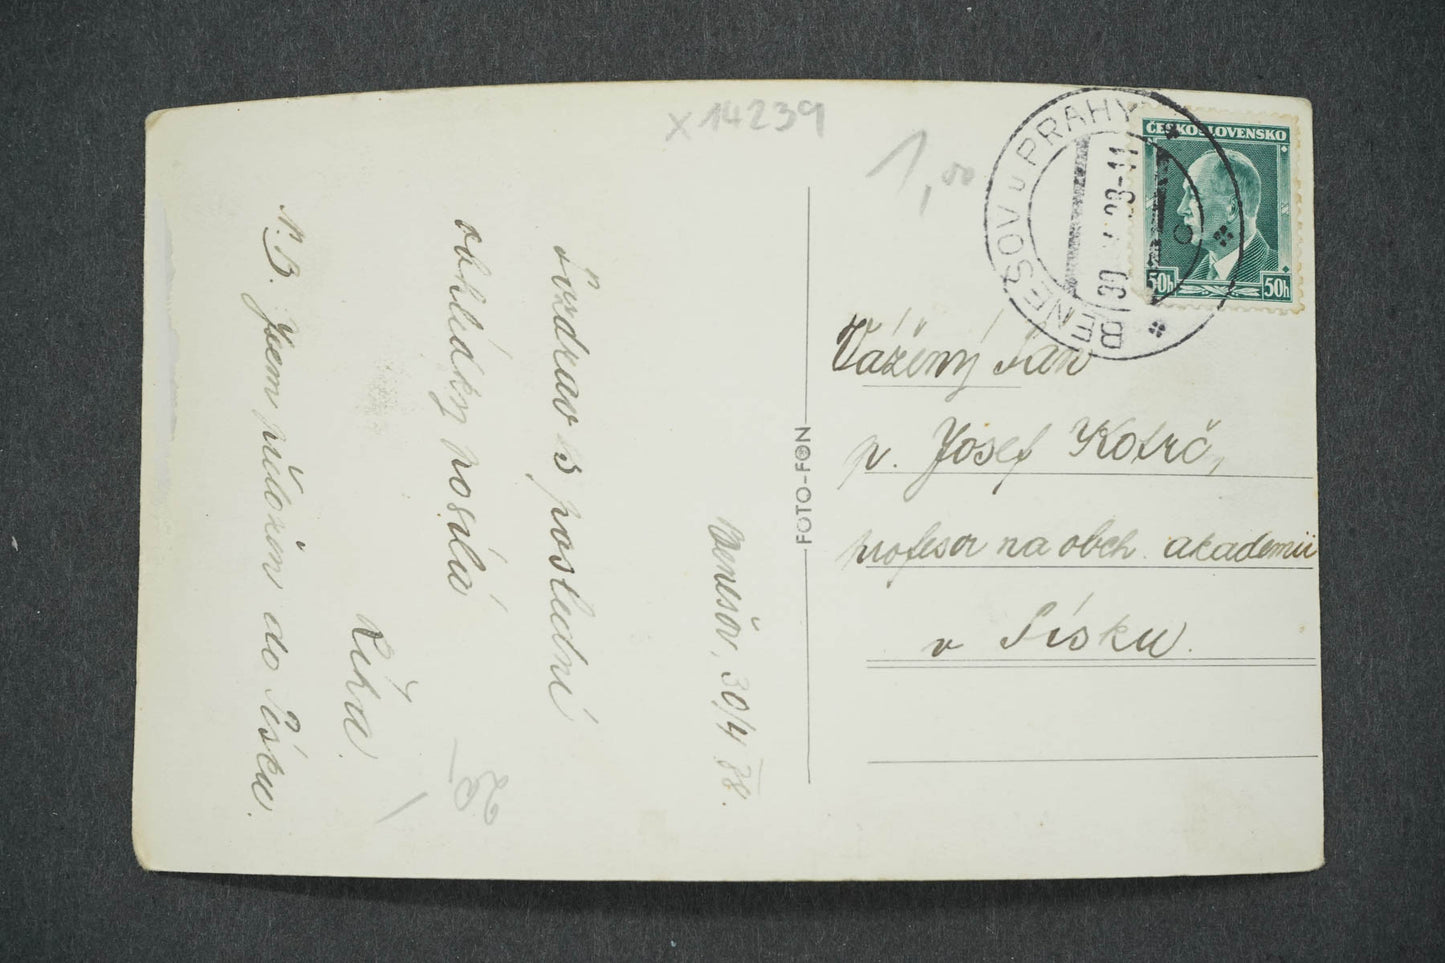 x14239
1,00
BENEŠOV u PRAHY
30. 38-11
ČESKOSLOVENSKO
50h 50h
Vážený Pan
p. Josef Kotrč,
profesor na obch. akademii
v Písku.
FOTO-FON
Benešov, 30/4 38.
Pozdrav s poslední
obhlídky posílá
Řiha.
N.B. Jsem přeložen do Písku.